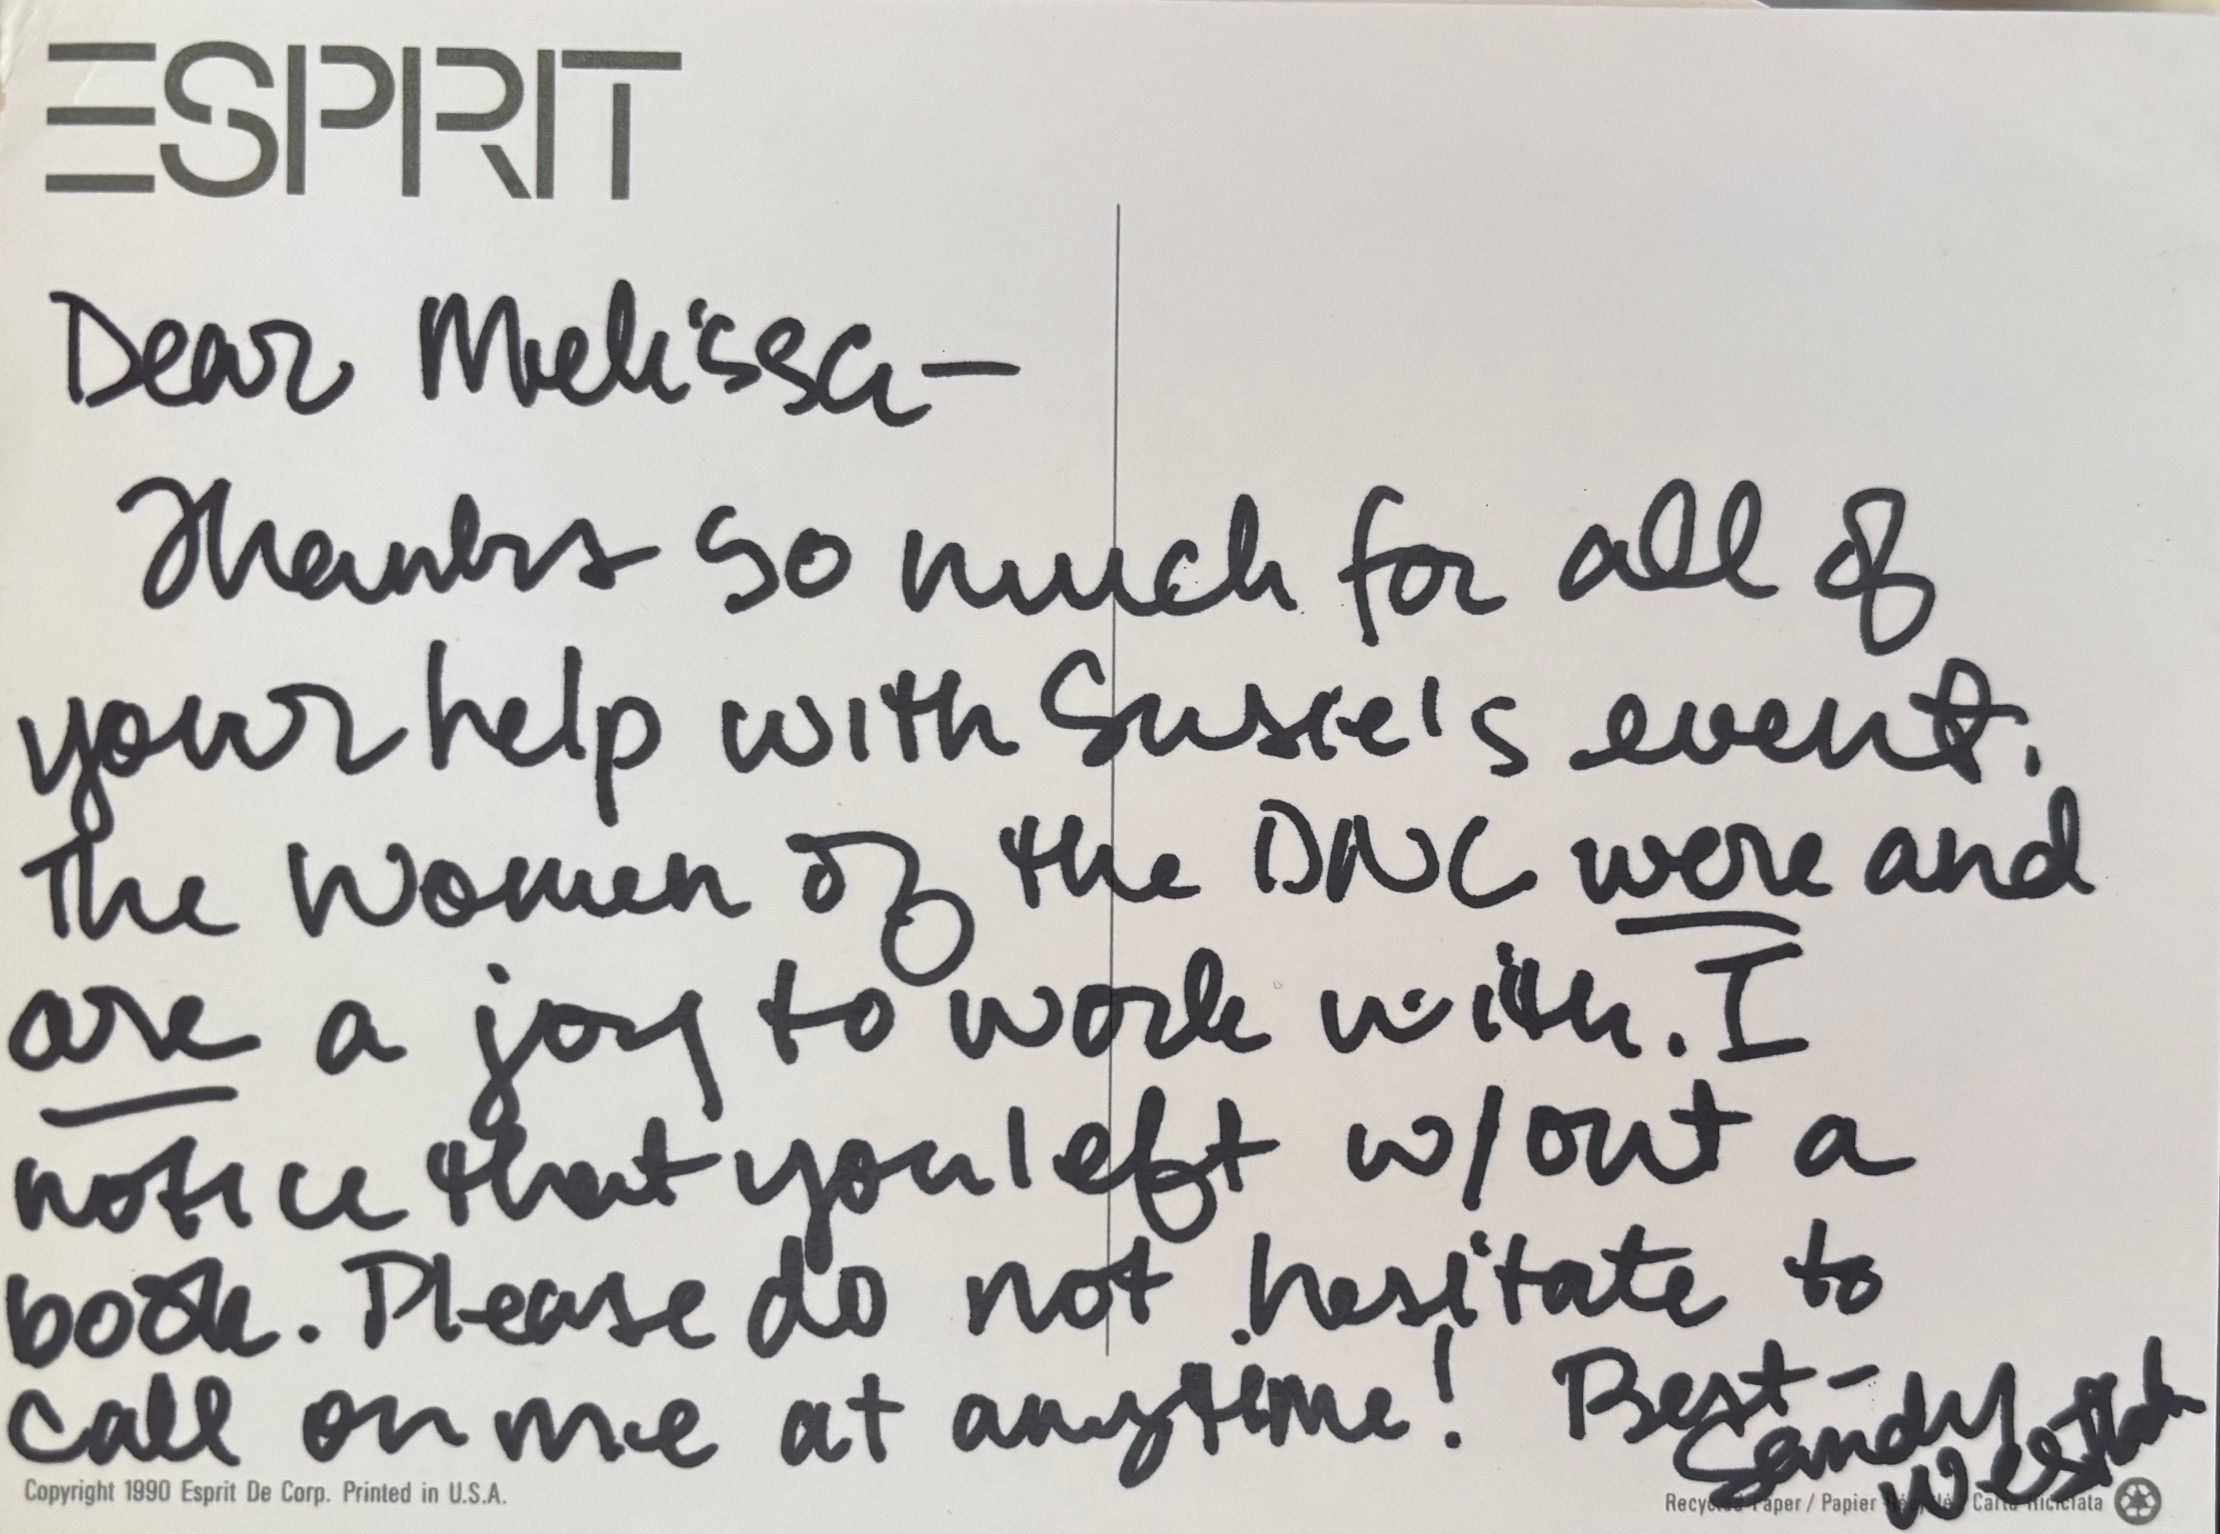 ESPRIT
Dear Melissa—
Thanks so much for all of
your help with Susie's event.
The Women of the DNC were and
are a joy to work with. I
notice that you left w/out a
book. Please do not hesitate to
call on me at anytime! Best—
Sandy
Copyright 1990 Esprit De Corp. Printed in U.S.A.
Recycled Paper / Papier Recyclé / Carta Riciclata